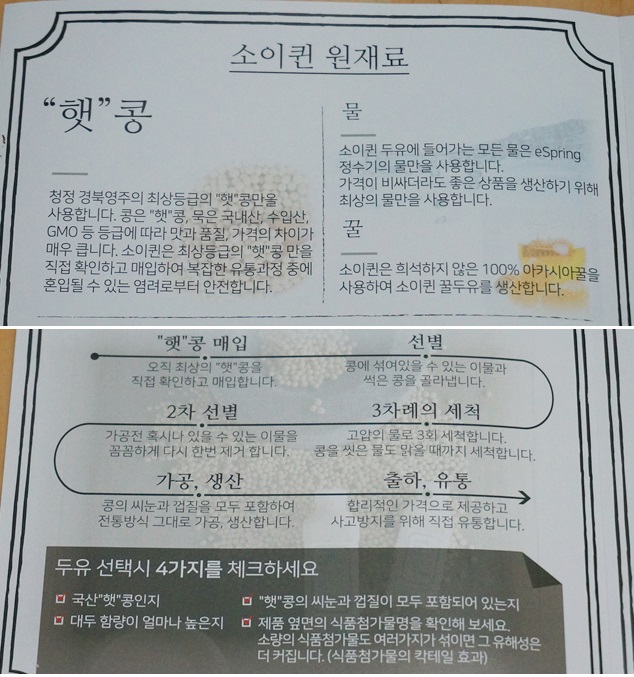 소이퀸 원재료
"햇"콩
청정 경북영주의 최상등급의 "햇"콩만을
사용합니다. 콩은 "햇"콩, 묵은 국내산, 수입산,
GMO 등 등급에 따라 맛과 품질, 가격의 차이가
매우 큽니다. 소이퀸은 최상등급의 "햇"콩 만을
직접 확인하고 매입하여 복잡한 유통과정 중에
혼입될 수 있는 염려로부터 안전합니다.
물
소이퀸 두유에 들어가는 모든 물은 eSpring
정수기의 물만을 사용합니다.
가격이 비싸더라도 좋은 상품을 생산하기 위해
최상의 물만을 사용합니다.
꿀
소이퀸은 희석하지 않은 100% 아카시아꿀을
사용하여 소이퀸 꿀두유를 생산합니다.
"햇"콩 매입
오직 최상의 "햇"콩을
직접 확인하고 매입합니다.
선별
콩에 섞여있을 수 있는 이물과
썩은 콩을 골라냅니다.
2차 선별
가공전 혹시나 있을 수 있는 이물을
꼼꼼하게 다시 한번 제거 합니다.
3차례의 세척
고압의 물로 3회 세척합니다.
콩을 씻은 물도 맑을 때까지 세척합니다.
가공, 생산
콩의 씨눈과 껍질을 모두 포함하여
전통방식 그대로 가공, 생산합니다.
출하, 유통
합리적인 가격으로 제공하고
사고방지를 위해 직접 유통합니다.
두유 선택시 4가지를 체크하세요
국산"햇"콩인지
"햇"콩의 씨눈과 껍질이 모두 포함되어 있는지
대두 함량이 얼마나 높은지
제품 옆면의 식품첨가물명을 확인해 보세요.
소량의 식품첨가물도 여러가지가 섞이면 그 유해성은
더 커집니다. (식품첨가물의 칵테일 효과)